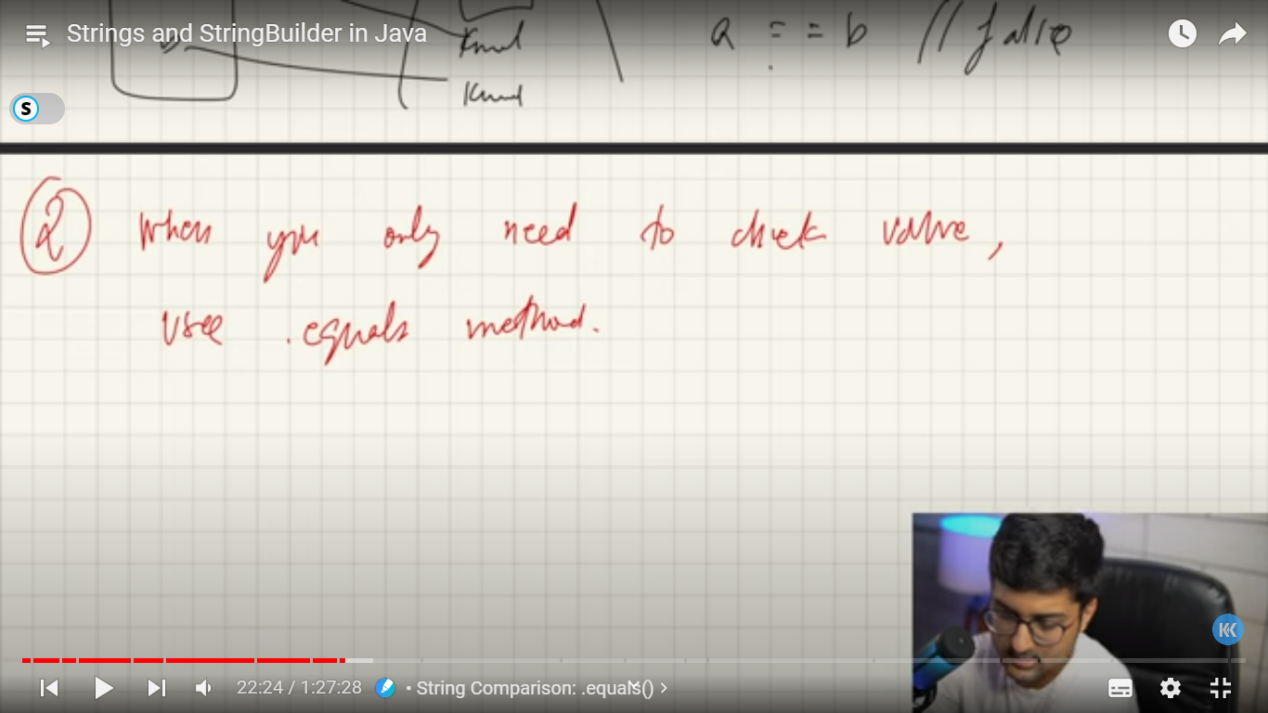 Strings and StringBuilder in Java
a == b // false
Kunal
Kunal
S
② When you only need to check value,
use .equals method.
22:24 / 1:27:28 • String Comparison: .equals() >